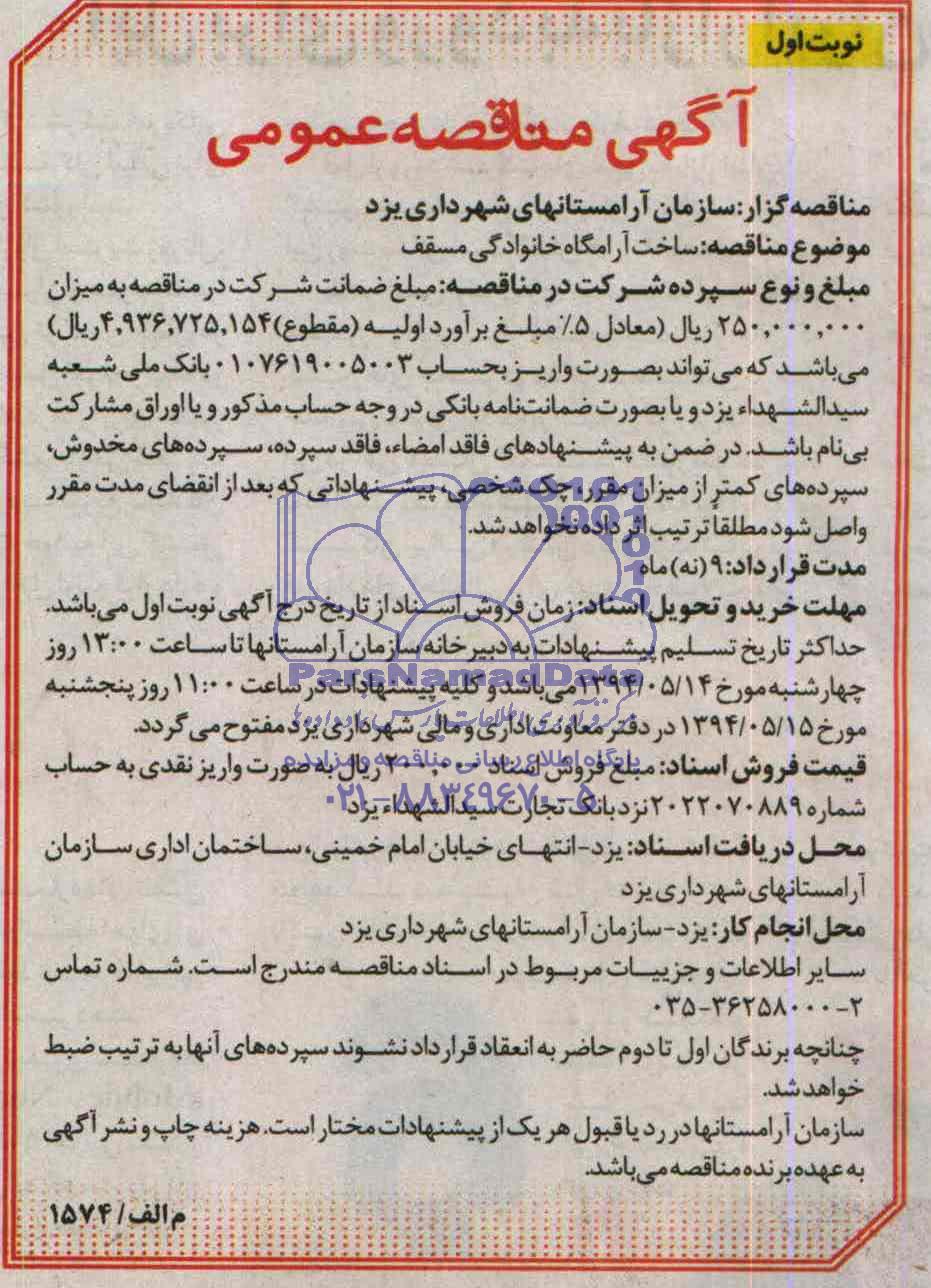 نوبت اول
آگهی مناقصه عمومی
مناقصه گزار: سازمان آرامستانهای شهرداری یزد
موضوع مناقصه: ساخت آرامگاه خانوادگی مسقف
مبلغ و نوع سپرده شرکت در مناقصه: مبلغ ضمانت شرکت در مناقصه به میزان
۲۵۰,۰۰۰,۰۰۰ ریال (معادل ۵٪ مبلغ برآورد اولیه (مقطوع) ۴,۹۳۶,۷۲۵,۱۵۴ ریال)
می‌باشد که می‌تواند بصورت واریز بحساب ۰۱۰۷۶۱۹۰۰۵۰۰۳ بانک ملی شعبه
سیدالشهداء یزد و یا بصورت ضمانت‌نامه بانکی در وجه حساب مذکور و یا اوراق مشارکت
بی‌نام باشد. در ضمن به پیشنهادهای فاقد امضاء، فاقد سپرده، سپرده‌های مخدوش،
سپرده‌های کمتر از میزان مقرر، چک شخصی، پیشنهاداتی که بعد از انقضای مدت مقرر
واصل شود مطلقاً ترتیب اثر داده نخواهد شد.
مدت قرارداد: ۹ (نه) ماه
مهلت خرید و تحویل اسناد: زمان فروش اسناد از تاریخ درج آگهی نوبت اول می‌باشد.
حداکثر تاریخ تسلیم پیشنهادات به دبیرخانه سازمان آرامستانها تا ساعت ۱۳:۰۰ روز
ParsNamadData
چهارشنبه مورخ ۱۳۹۴/۰۵/۱۴ می‌باشد و کلیه پیشنهادات در ساعت ۱۱:۰۰ روز پنجشنبه
مورخ ۱۳۹۴/۰۵/۱۵ در دفتر معاونت اداری و مالی شهرداری یزد مفتوح می گردد.
پایگاه اطلاع رسانی مناقصه و مزایده
قیمت فروش اسناد: مبلغ فروش اسناد ۲۰۰,۰۰۰ ریال به صورت واریز نقدی به حساب
۰۲۱-۸۸۳۴۹۶۷۰-۵
شماره ۲۰۲۲۰۷۰۸۸۹ نزد بانک تجارت سیدالشهداء یزد
محل دریافت اسناد: یزد-انتهای خیابان امام خمینی، ساختمان اداری سازمان
آرامستانهای شهرداری یزد
محل انجام کار: یزد-سازمان آرامستانهای شهرداری یزد
سایر اطلاعات و جزییات مربوط در اسناد مناقصه مندرج است. شماره تماس
۰۳۵-۳۶۲۵۸۰۰۰-۲
چنانچه برندگان اول تا دوم حاضر به انعقاد قرارداد نشوند سپرده‌های آنها به ترتیب ضبط
خواهد شد.
سازمان آرامستانها در رد یا قبول هر یک از پیشنهادات مختار است. هزینه چاپ و نشر آگهی
به عهده برنده مناقصه می‌باشد.
م الف/ ۱۵۷۴